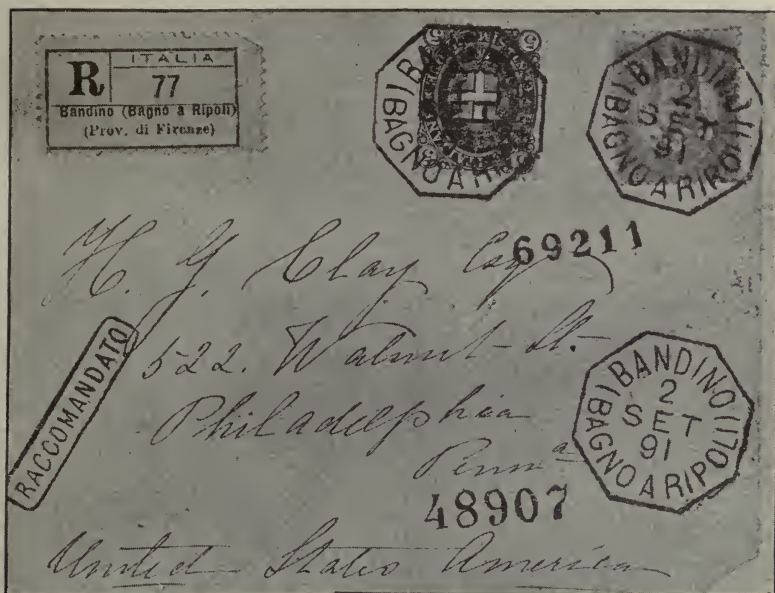 ITALIA
R 77
Bandino (Bagno a Ripoli)
(Prov. di Firenze)
BA
(BAGNO A RI
5 5
BANDINO
2
SET
91
(BAGNO A RIPOLI)
69211
H. G. Clay Esq
522. Walnut-St.-
Philadelphia
Penna
RACCOMANDATO
BANDINO
2
SET
91
(BAGNO A RIPOLI)
48907
United States America